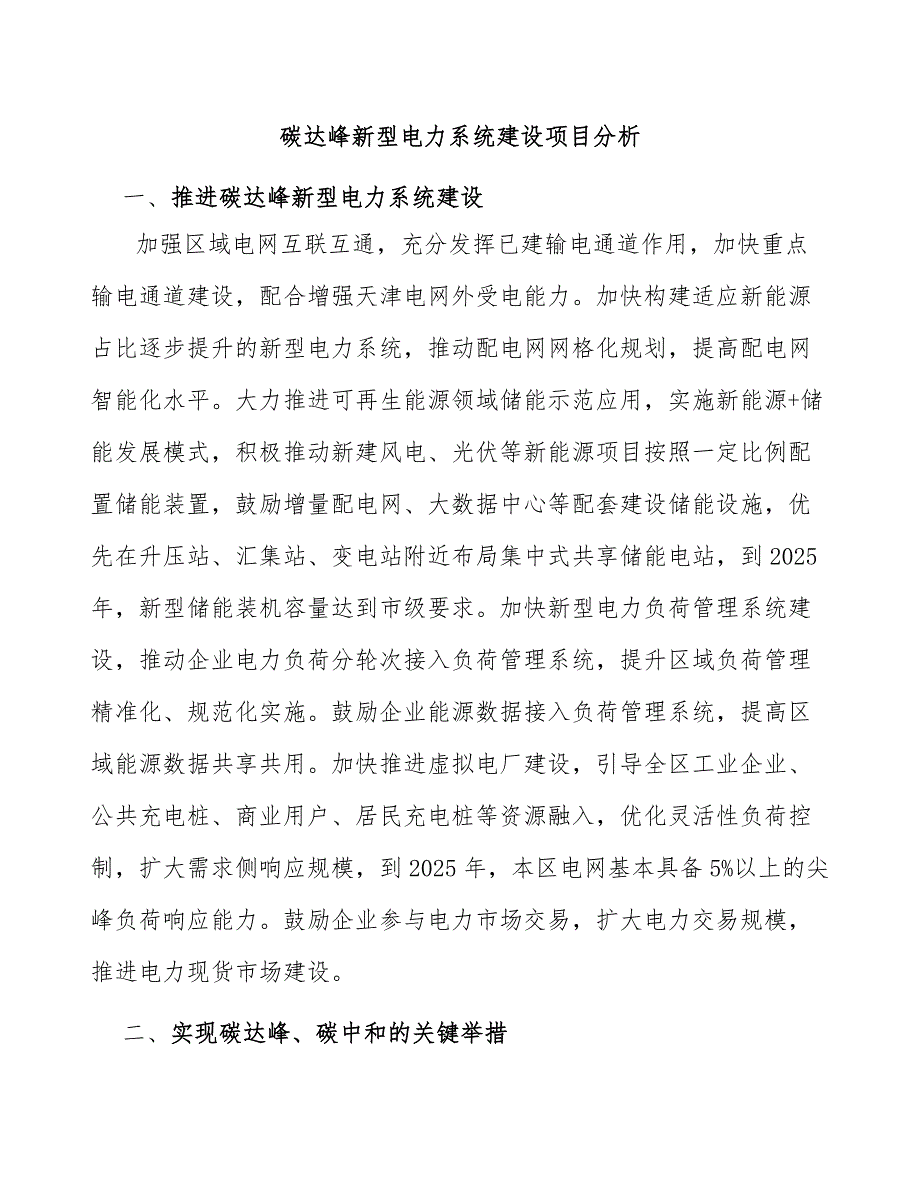 碳达峰新型电力系统建设项目分析
一、推进碳达峰新型电力系统建设
加强区域电网互联互通，充分发挥已建输电通道作用，加快重点
输电通道建设，配合增强天津电网外受电能力。加快构建适应新能源
占比逐步提升的新型电力系统，推动配电网网格化规划，提高配电网
智能化水平。大力推进可再生能源领域储能示范应用，实施新能源+储
能发展模式，积极推动新建风电、光伏等新能源项目按照一定比例配
置储能装置，鼓励增量配电网、大数据中心等配套建设储能设施，优
先在升压站、汇集站、变电站附近布局集中式共享储能电站，到 2025
年，新型储能装机容量达到市级要求。加快新型电力负荷管理系统建
设，推动企业电力负荷分轮次接入负荷管理系统，提升区域负荷管理
精准化、规范化实施。鼓励企业能源数据接入负荷管理系统，提高区
域能源数据共享共用。加快推进虚拟电厂建设，引导全区工业企业、
公共充电桩、商业用户、居民充电桩等资源融入，优化灵活性负荷控
制，扩大需求侧响应规模，到 2025 年，本区电网基本具备 5%以上的尖
峰负荷响应能力。鼓励企业参与电力市场交易，扩大电力交易规模，
推进电力现货市场建设。
二、实现碳达峰、碳中和的关键举措